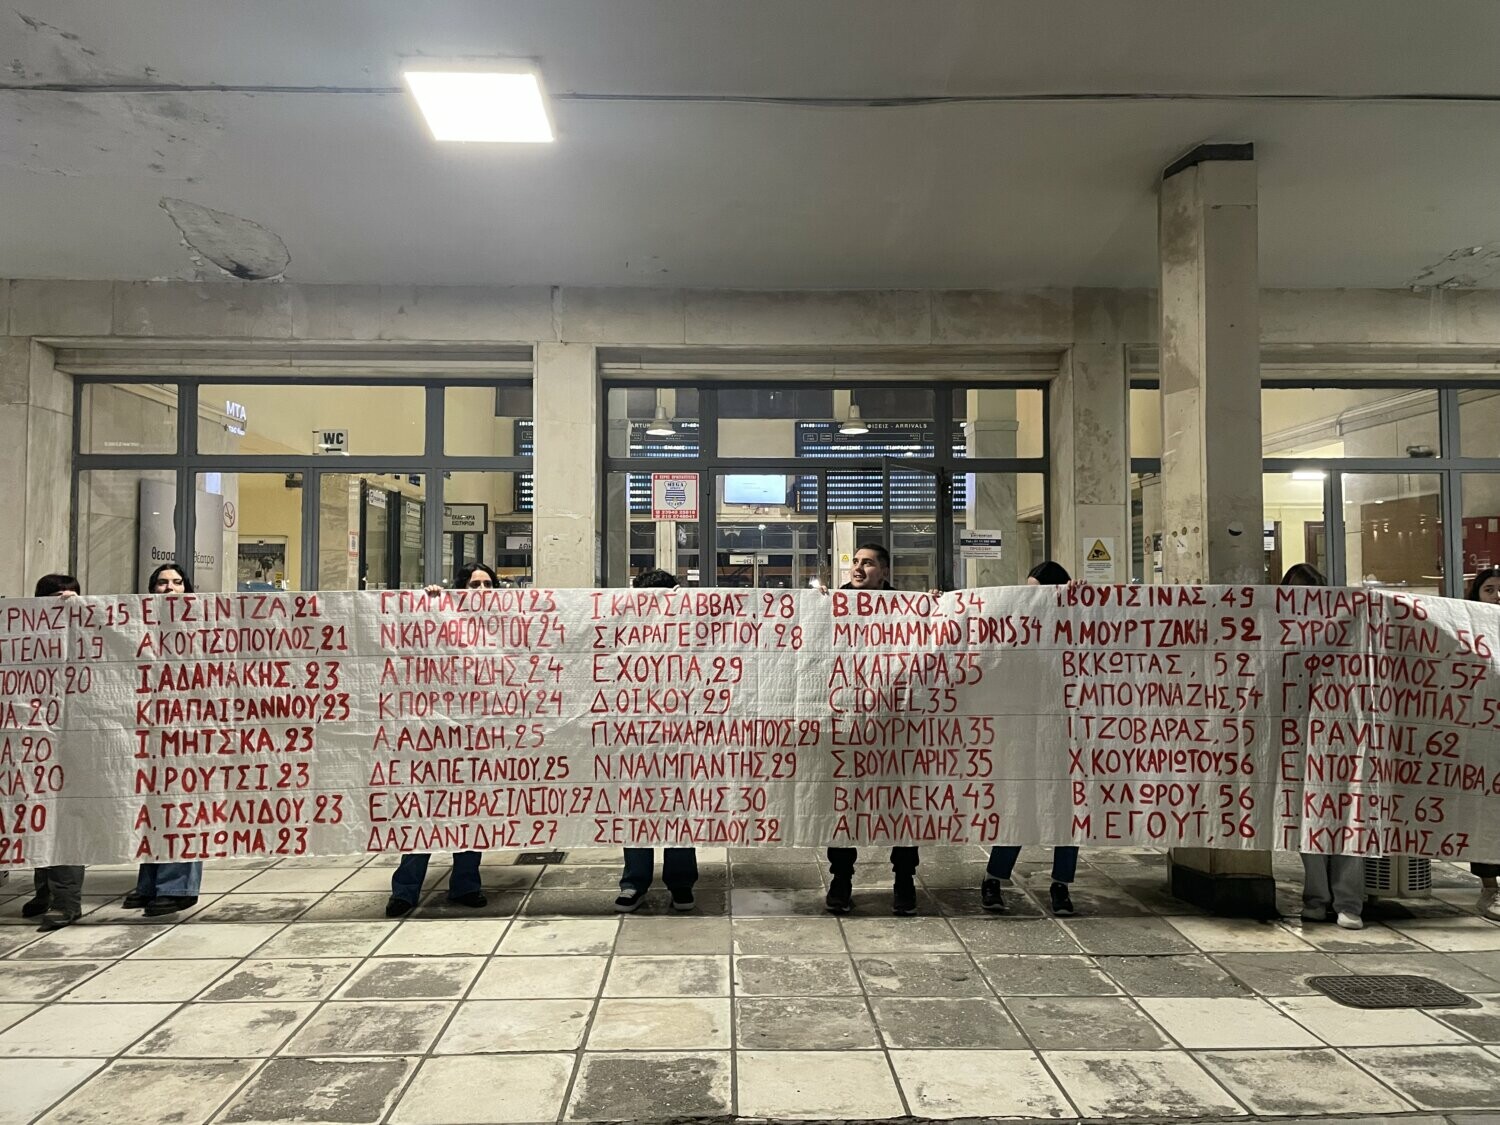 MTA
WC
ΑΦΙΞΕΙΣ - ARRIVALS
MEGA
ΕΚΔΟΤΗΡΙΑ
ΕΙΣΙΤΗΡΙΩΝ
Θεσσα
θέατρο
ΥΡΝΑΖΗΣ, 15
ΓΓΕΛΗ, 19
ΠΟΥΛΟΥ, 20
ΙΑ, 20
Α, 20
ΚΙΑ, 20
Α 20
21
Ε. ΤΣΙΝΤΖΑ, 21
Α. ΚΟΥΤΣΟΠΟΥΛΟΣ, 21
Ι. ΑΔΑΜΑΚΗΣ, 23
Κ. ΠΑΠΑΪΩΑΝΝΟΥ, 23
Ι. ΜΗΤΣΚΑ, 23
Ν. ΡΟΥΤΣΙ, 23
Α. ΤΣΑΚΛΙΔΟΥ, 23
Α. ΤΣΙΩΜΑ, 23
Γ. ΠΑΠΑΖΟΓΛΟΥ, 23
Ν. ΚΑΡΑΘΕΟΛΩΓΟΥ, 24
Α. ΤΗΛΚΕΡΙΔΗΣ, 24
Κ. ΠΟΡΦΥΡΙΔΟΥ, 24
Α. ΑΔΑΜΙΔΗ, 25
ΔΕ. ΚΑΠΕΤΑΝΙΟΥ, 25
Ε. ΧΑΤΖΗΒΑΣΙΛΕΙΟΥ, 27
Δ. ΑΣΛΑΝΙΔΗΣ, 27
Ι. ΚΑΡΑΣΑΒΒΑΣ, 28
Σ. ΚΑΡΑΓΕΩΡΓΙΟΥ, 28
Ε. ΧΟΥΠΑ, 29
Δ. ΟΙΚΟΥ, 29
Π. ΧΑΤΖΗΧΑΡΑΛΑΜΠΟΥΣ, 29
Ν. ΝΑΛΜΠΑΝΤΗΣ, 29
Δ. ΜΑΣΣΑΛΗΣ, 30
Σ. ΕΤΑΧ ΜΑΖΙΔΟΥ, 32
Β. ΒΛΑΧΟΣ, 34
M. MOHAMMAD EDRIS, 34
Α. ΚΑΤΣΑΡΑ, 35
C. IONEL, 35
Ε. ΔΟΥΡΜΙΚΑ, 35
Σ. ΒΟΥΛΓΑΡΗΣ, 35
Β. ΜΠΛΕΚΑ, 43
Α. ΠΑΥΛΙΔΗΣ, 49
Ι. ΒΟΥΤΣΙΝΑΣ, 49
Μ. ΜΟΥΡΤΖΑΚΗ, 52
Β. Κ. ΚΩΤΤΑΣ, 52
Ε. ΜΠΟΥΡΝΑΖΗΣ, 54
Ι. ΤΖΟΒΑΡΑΣ, 55
Χ. ΚΟΥΚΑΡΙΩΤΟΥ, 56
Β. ΧΛΩΡΟΥ, 56
Μ. ΕΓΟΥΤ, 56
Μ. ΜΙΑΡΗ, 56
ΣΥΡΟΣ ΜΕΤΑΝ. 56
Γ. ΦΩΤΟΠΟΥΛΟΣ, 57
Γ. ΚΟΥΤΣΟΥΜΠΑΣ, 59
Β. ΡΑΛΛΙΝΙ, 62
Ε. ΝΤΟΣ ΣΑΝΤΟΣ ΣΙΛΒΑ, 6
Ι. ΚΑΡΙΩΗΣ, 63
Γ. ΚΥΡΙΑΙΔΗΣ, 67